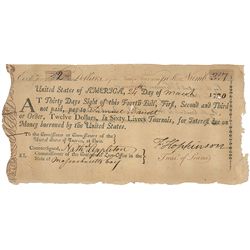 Dollars Numb. 307
United States of AMERICA, Day of March 1780
AT Thirty Days Sight of this Fourth Bill, First, Second and Third
not paid, pay to
or Order, Twelve Dollars, in Sixty Livres Tournois, for Interest due on
Money borrowed by the United States.
To the Commissioner or Commissioners of the
United States of America, at Paris.
F Hopkinson
Treasr. of Loans
Countersigned, Nath Appleton
Commissioner of the Continental Loan-Office in the
State of Massachusetts bay